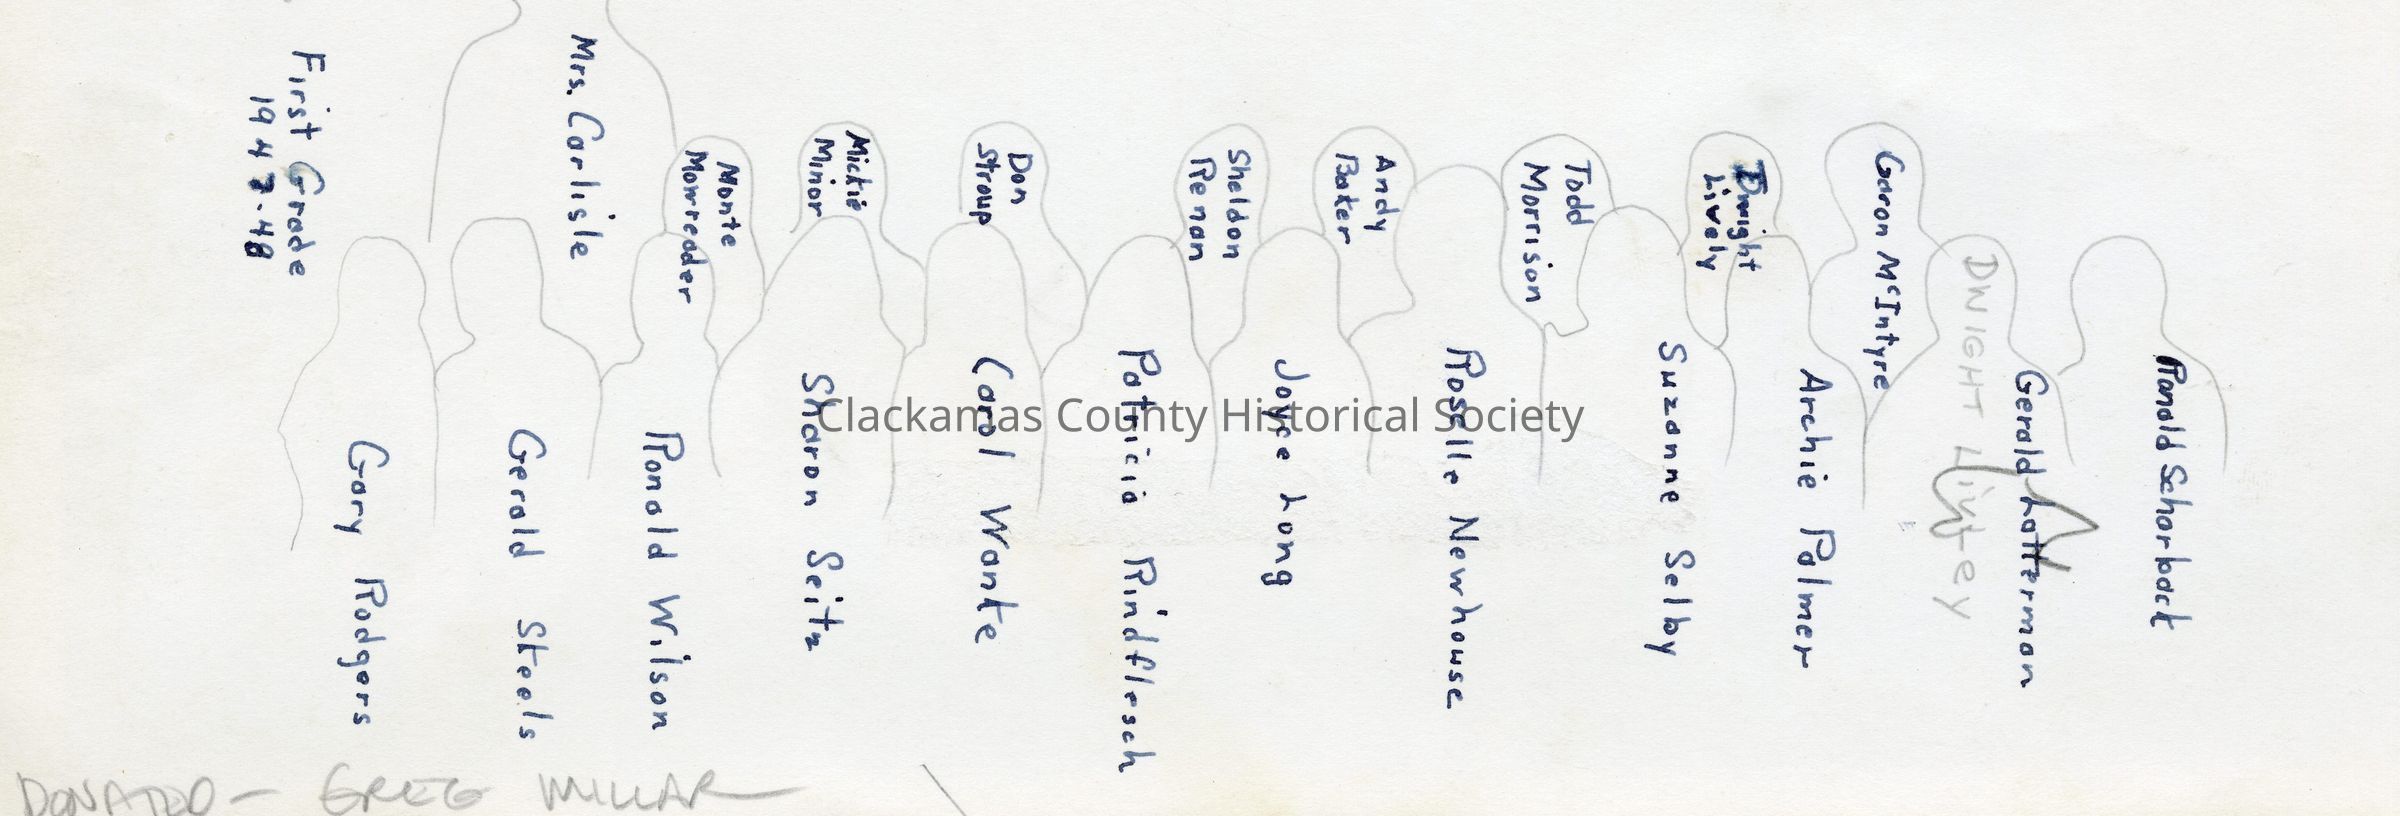 First Grade
1947-48
Mrs. Carlisle
Monte
Mowreader
Mickie
Minor
Don
Stroup
Sheldon
Renan
Andy
Baker
Todd
Morrison
Dwight
Lively
Garon McIntyre
Gary Rodgers
Gerald Steels
Ronald Wilson
Sharon Seitz
Carol Wanke
Patricia Rindflesch
Joyce Long
Roselle Newhouse
Suzanne Selby
Archie Palmer
DWIGHT
Gerald Latterman
Ronald Scharback
Clackamas County Historical Society
DONATED - GREG MILLAR